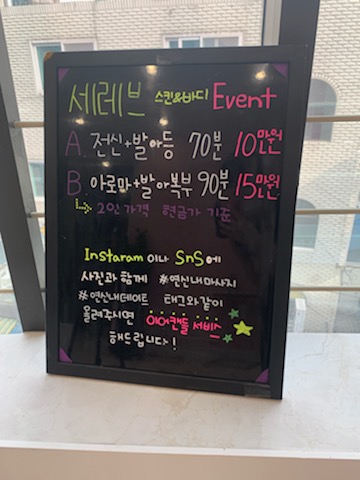 세레브 스킨&바디 Event
A. 전신+발 or 등 70분 10만원
B. 아로마+발 or 복부 90분 15만원
↳ 2인가격 현금가 기준
Instaram 이나 SnS에
사진과 함께 #연신내마사지
#연신내데이트 태그와같이
올려주시면 이어캔들 서비스
해드립니다!